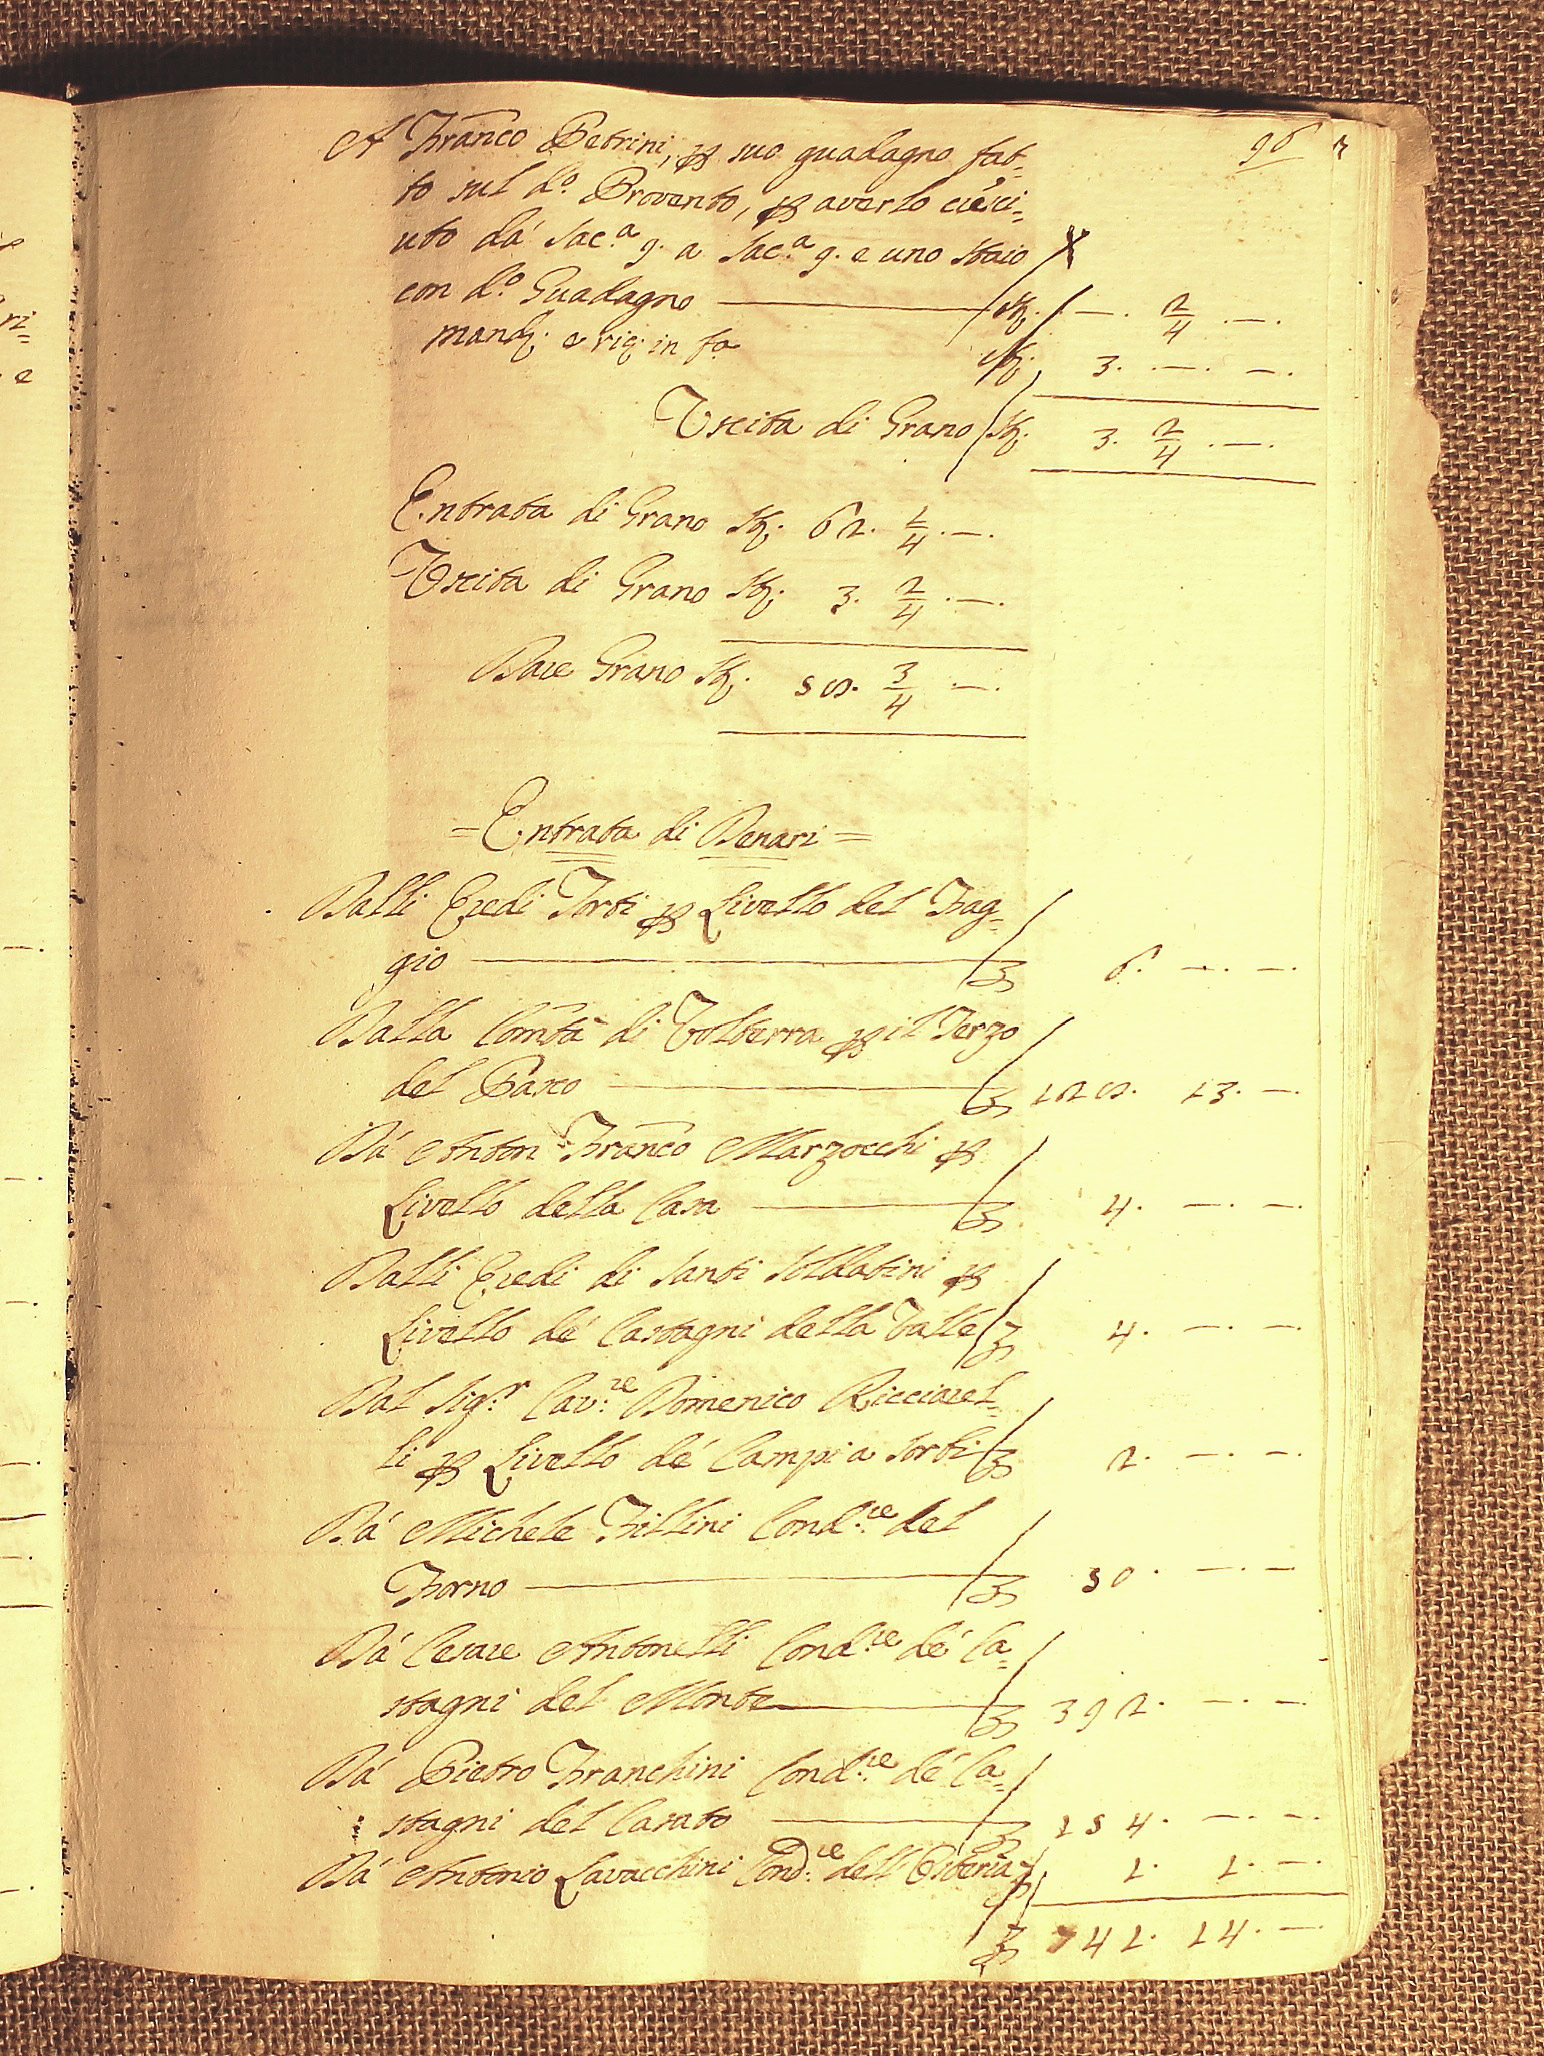 96
A Franco Petrini, ꝑ suo guadagno fat=
to sul d.º Provento, ꝑ averlo cresci=
uto dà sac.ª 9. a sac.ª 9. e uno staio
con d.º Guadagno — st. —. 2/4. —.
st. 3. —. —.
Uscita di Grano st. 3. 2/4. —.
Entrata di Grano st. 62. 1/4. —.
Uscita di Grano st. 3. 2/4. —.
Dare Grano st. 58. 3/4 —.
= Entrata di Denari =
Dalli Eredi Torti ꝑ Livello del Frag=
gio — £ 6. —. —.
Dalla Com̃tà di Volterra ꝑ il Terzo
del Pasco — £ 128. 13. —.
Dà Anton Franco Marzocchi ꝑ
Livello della Casa — £ 4. —. —.
Dalli Eredi di Santi Soldatini ꝑ
Livello de' Castagni della Valle £ 4. —. —.
Dal Sig.r Cav.re Domenico Ricciarel=
li ꝑ Livello de' Campi a Sorbi £ 2. —. —.
Dà Michele Fillini Cond.re del
Forno — £ 50. —. —
Dà Cesare Antonelli Cond.re de' Ca=
stagni del Monte — £ 392. —. —.
Dà Pietro Franchini Cond.re de' Ca=
stagni del Casato — £ 154. —. —.
Dà Antonio Lavacchini Cond.re dell'Osteria £ 1. 1. —
£ 741. 14. —